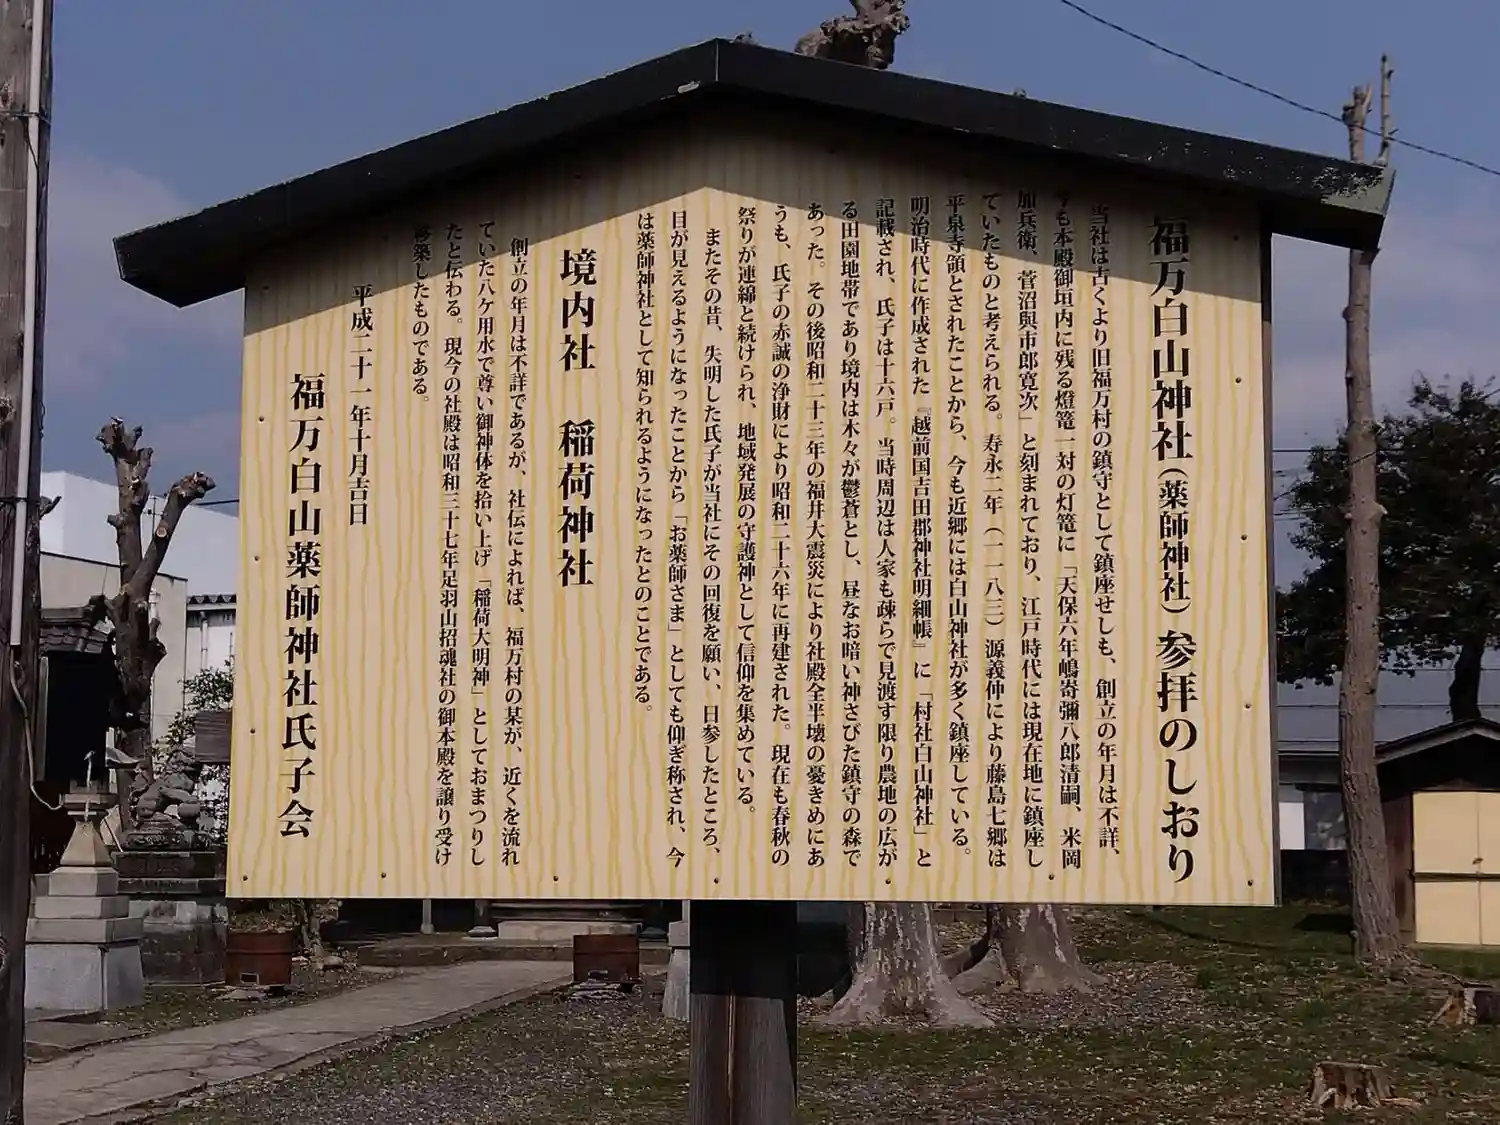 福万白山神社(薬師神社)参拝のしおり
当社は古くより旧福万村の鎮守として鎮座せしも、創立の年月は不詳、
今も本殿御垣内に残る燈篭一対の灯篭に「天保六年嶋寄彌八郎清嗣、米岡
加兵衛、菅沼與市郎寛次」と刻まれており、江戸時代には現在地に鎮座し
ていたものと考えられる。寿永二年(一一八三)源義仲により藤島七郷は
平泉寺領とされたことから、今も近郷には白山神社が多く鎮座している。
明治時代に作成された『越前国吉田郡神社明細帳』に「村社白山神社」と
記載され、氏子は十六戸。当時周辺は人家も疎らで見渡す限り農地の広が
る田園地帯であり境内は木々が鬱蒼とし、昼なお暗い神さびた鎮守の森で
あった。その後昭和二十三年の福井大震災により社殿全半壊の憂きめにあ
うも、氏子の赤誠の浄財により昭和二十六年に再建された。現在も春秋の
祭りが連綿と続けられ、地域発展の守護神として信仰を集めている。
またその昔、失明した氏子が当社にその回復を願い、日参したところ、
目が見えるようになったことから「お薬師さま」としても仰ぎ称され、今
は薬師神社として知られるようになったとのことである。
境内社 稲荷神社
創立の年月は不詳であるが、社伝によれば、福万村の某が、近くを流れ
ていた八ケ用水で尊い御神体を拾い上げ「稲荷大明神」としておまつりし
たと伝わる。現今の社殿は昭和三十七年足羽山招魂社の御本殿を譲り受け
移築したものである。
平成二十一年十月吉日
福万白山薬師神社氏子会